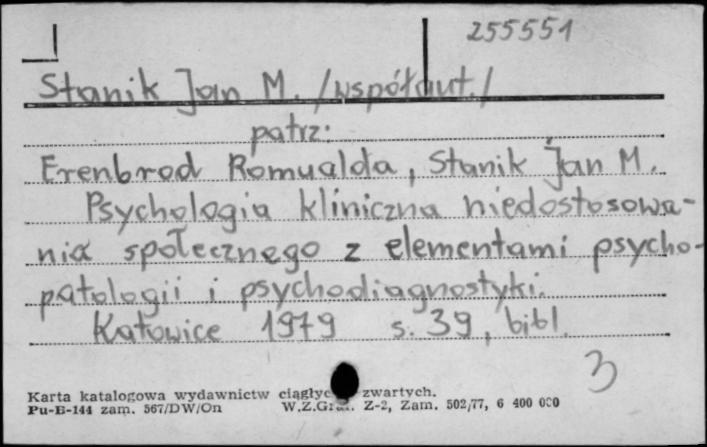 255551
Stanik Jan M. /współaut./
patrz:
Erenbrod Romualda, Stanik Jan M.
Psychologia kliniczna niedostosowa-
nia społecznego z elementami psycho-
patologii i psychodiagnostyki.
Katowice 1979 s. 39, bibl.
3
Karta katalogowa wydawnictw zwartych.
Pu-B-144 zam. 567/DW/On W.Z.Graf. Z-2, Zam. 502/77, 6 400 000